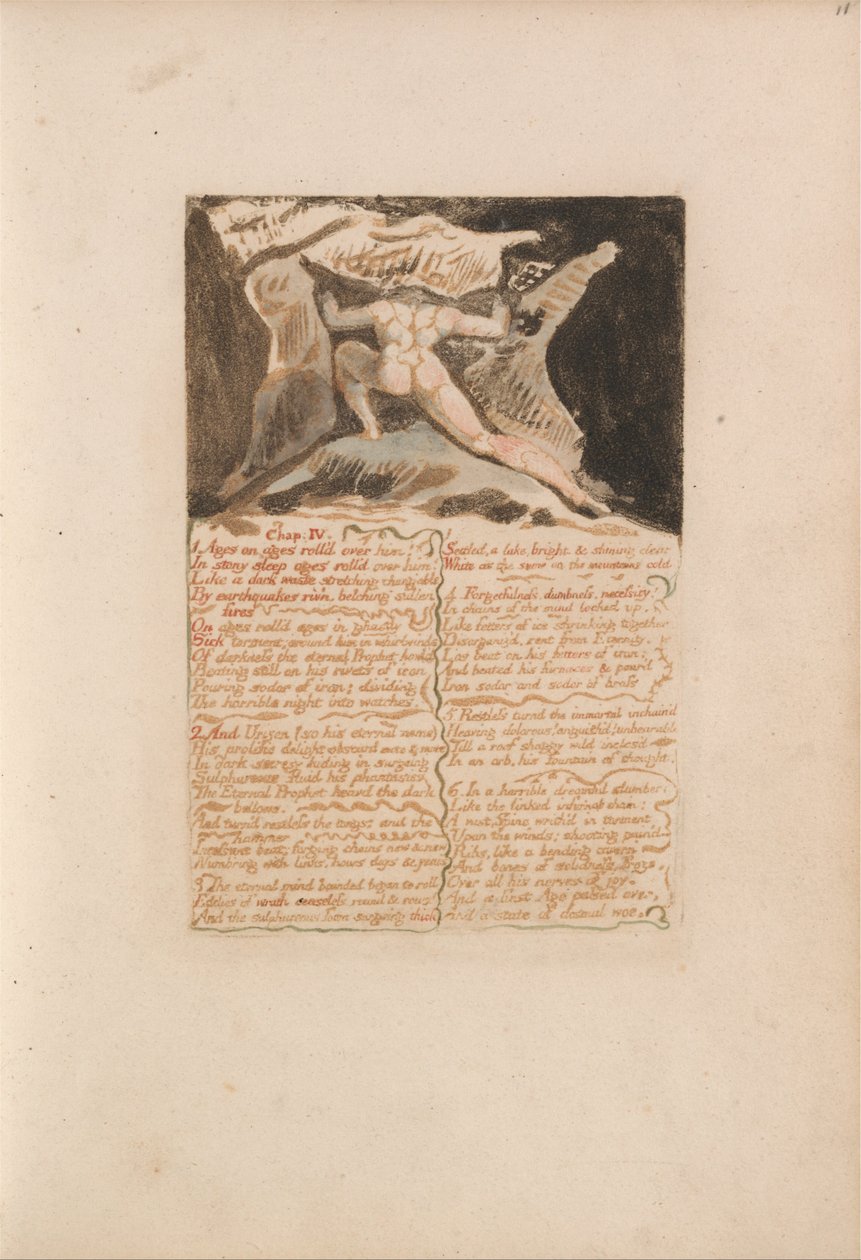 11
Chap: IV.
1. Ages on ages roll'd over him!
In stony sleep ages roll'd over him!
Like a dark waste stretching chang'able
By earthquakes riv'n, belching sullen
fires
On ages roll'd ages in ghastly
Sick torment; around him in whirlwinds
Of darkness the eternal Prophet howl'd
Beating still on his rivets of iron
Pouring sodor of iron; dividing
The horrible night into watches.
2. And Urizen (so his eternal name)
His prolific delight obscurd more & more
In dark secresy hiding in surgeing
Sulphureous fluid his phantasies.
The Eternal Prophet heavd the dark
bellows,
And turn'd restless the tongs; and the
hammer
Incessant beat; forging chains new & new
Numb'ring with links, hours, days & years
3 The eternal mind bounded began to roll
Eddies of wrath ceaseless round & round,
And the sulphureous foam surgeing thick
Settled, a lake, bright, & shining clear:
White as the snow on the mountains cold.
4. Forgetfulness, dumbness, necessity!
In chains of the mind locked up,
Like fetters of ice shrinking together
Disorganiz'd, rent from Eternity,
Los beat on his fetters of iron;
And heated his furnaces & pour'd
Iron sodor and sodor of brass
5. Restless turnd the immortal inchain'd
Heaving dolorous! anguish'd! unbearable
Till a roof shaggy wild inclos'd
In an orb, his fountain of thought.
6. In a horrible dreamful slumber;
Like the linked infernal chain;
A vast Spine writh'd in torment
Upon the winds; shooting pain'd
Ribs, like a bending cavern
And bones of solidness, froze
Over all his nerves of joy.
And a first Age passed over,
And a state of dismal woe.